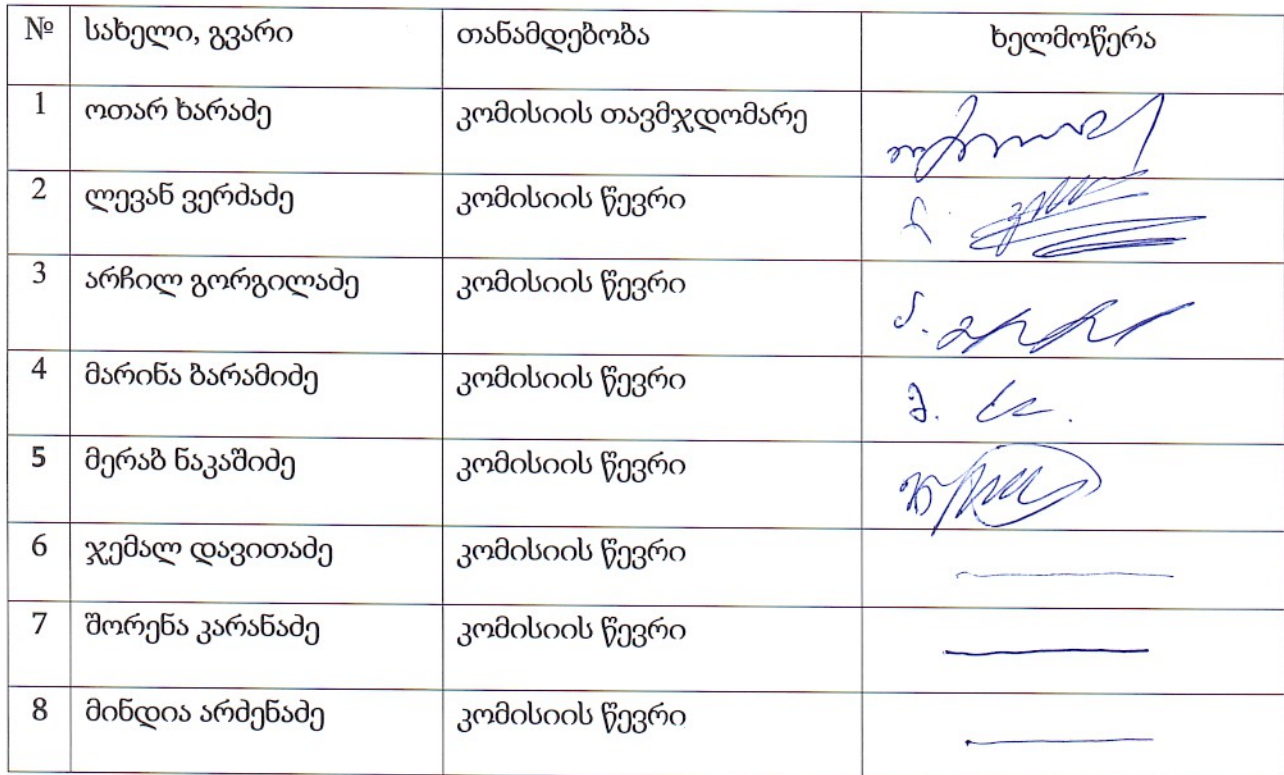 № სახელი, გვარი თანამდებობა ხელმოწერა
1 ოთარ ხარაძე კომისიის თავმჯდომარე
2 ლევან ვერძაძე კომისიის წევრი
3 არჩილ გორგილაძე კომისიის წევრი
4 მარინა ბარამიძე კომისიის წევრი
5 მერაბ ნაკაშიძე კომისიის წევრი
6 ჯემალ დავითაძე კომისიის წევრი
7 შორენა კარანაძე კომისიის წევრი
8 მინდია არძენაძე კომისიის წევრი